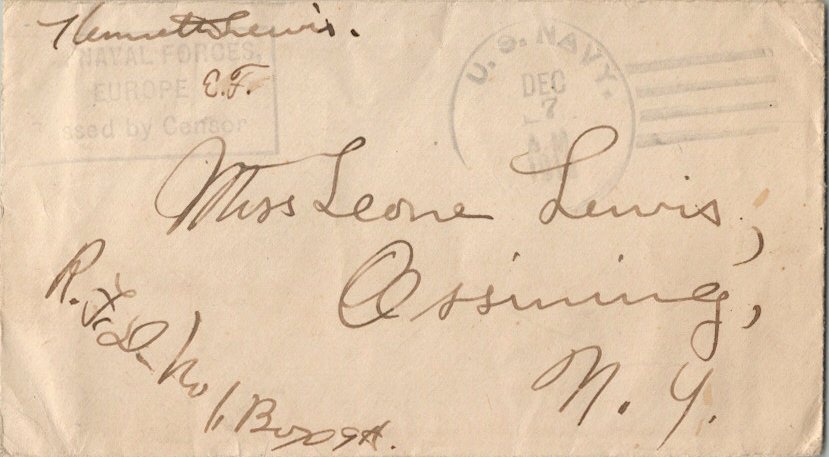 Kenneth Lewis.
NAVAL FORCES
EUROPE
E.F.
ssed by Censor
U. S. NAVY.
DEC
7
A M
Miss Leone Lewis,
Ossining,
N. Y.
R. F. D. No 1. Box